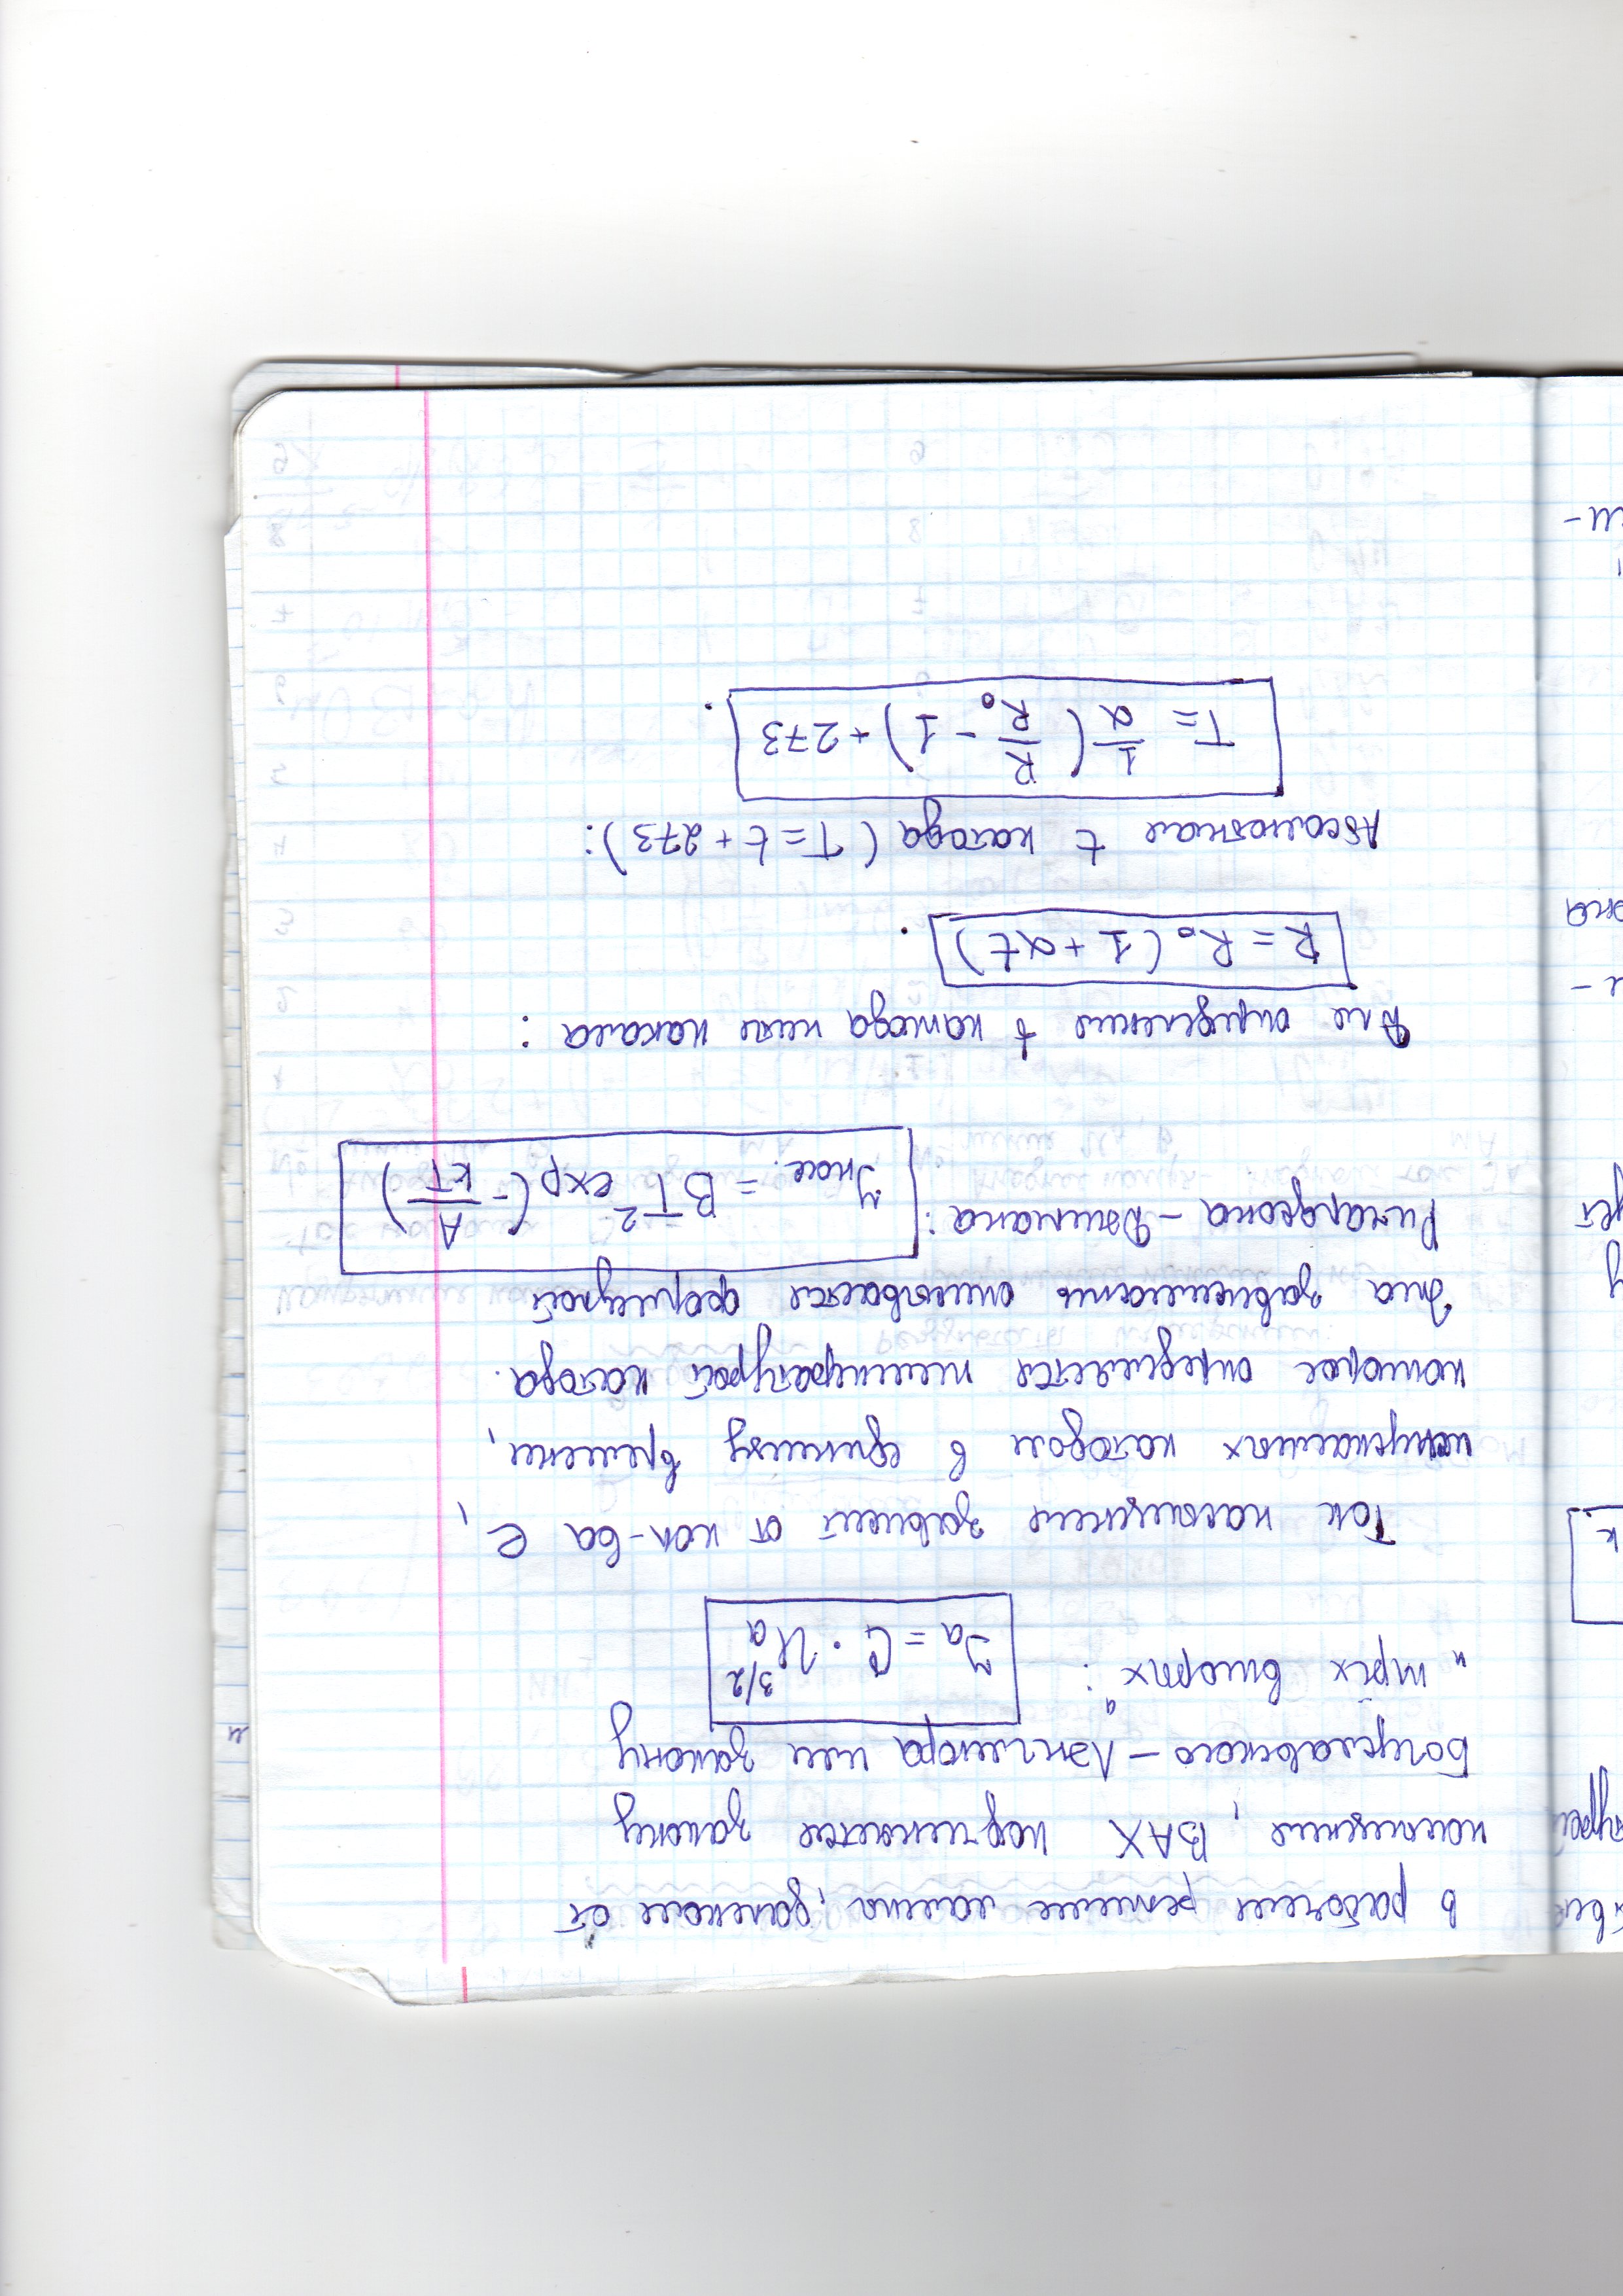 В рабочем режиме лампы, далеком от
насыщения, ВАХ подчиняется закону
Богуславского – Лэнгмюра или закону
„трёх вторых“:
Jа = C · Uа^3/2
Ток насыщения зависит от кол-ва e,
испускаемых катодом в единицу времени,
которое определяется температурой катода.
Эта зависимость описывается формулой
Ричардсона – Дэшмана:
Jнас. = BT² exp(- A/kT)
Для определения t катода нити накала:
R = R₀ (1 + αt).
Абсолютная t катода (T = t + 273):
T = 1/α (R/R₀ - 1) + 273.